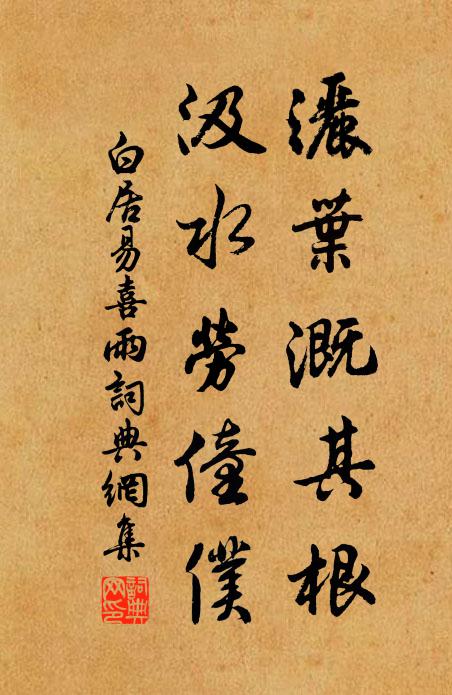 灑葉溉其根
汲水勞僮僕
白居易喜雨詞典網集
詞典網印